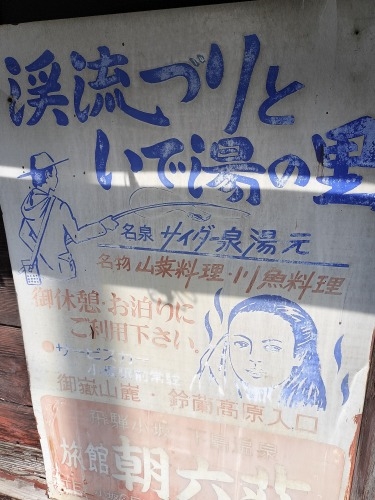 渓流づりと
いで湯の里
名泉 サイダー泉湯元
名物 山菜料理・川魚料理
御休憩・お泊りに
ご利用下さい
御嶽山麓・鈴蘭高原入口
旅館 朝六荘